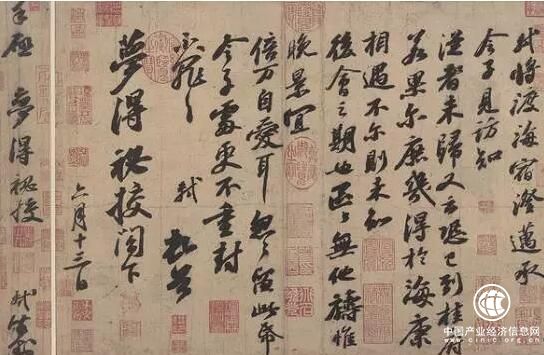 軾將渡海宿澄邁承
令子見訪知
從者未歸又云恐已到桂府
若果尔庶幾得於海康
相遇不尔則未知
後會之期也區々無他禱惟
晚景宜
倍万自愛耳匆々留此帋
令子處更不重封
不罪々
軾 頓首
夢得祕校閣下
六月十三日
手啟 夢得祕校 軾
中国产业经济信息网
www.cinic.org.cn